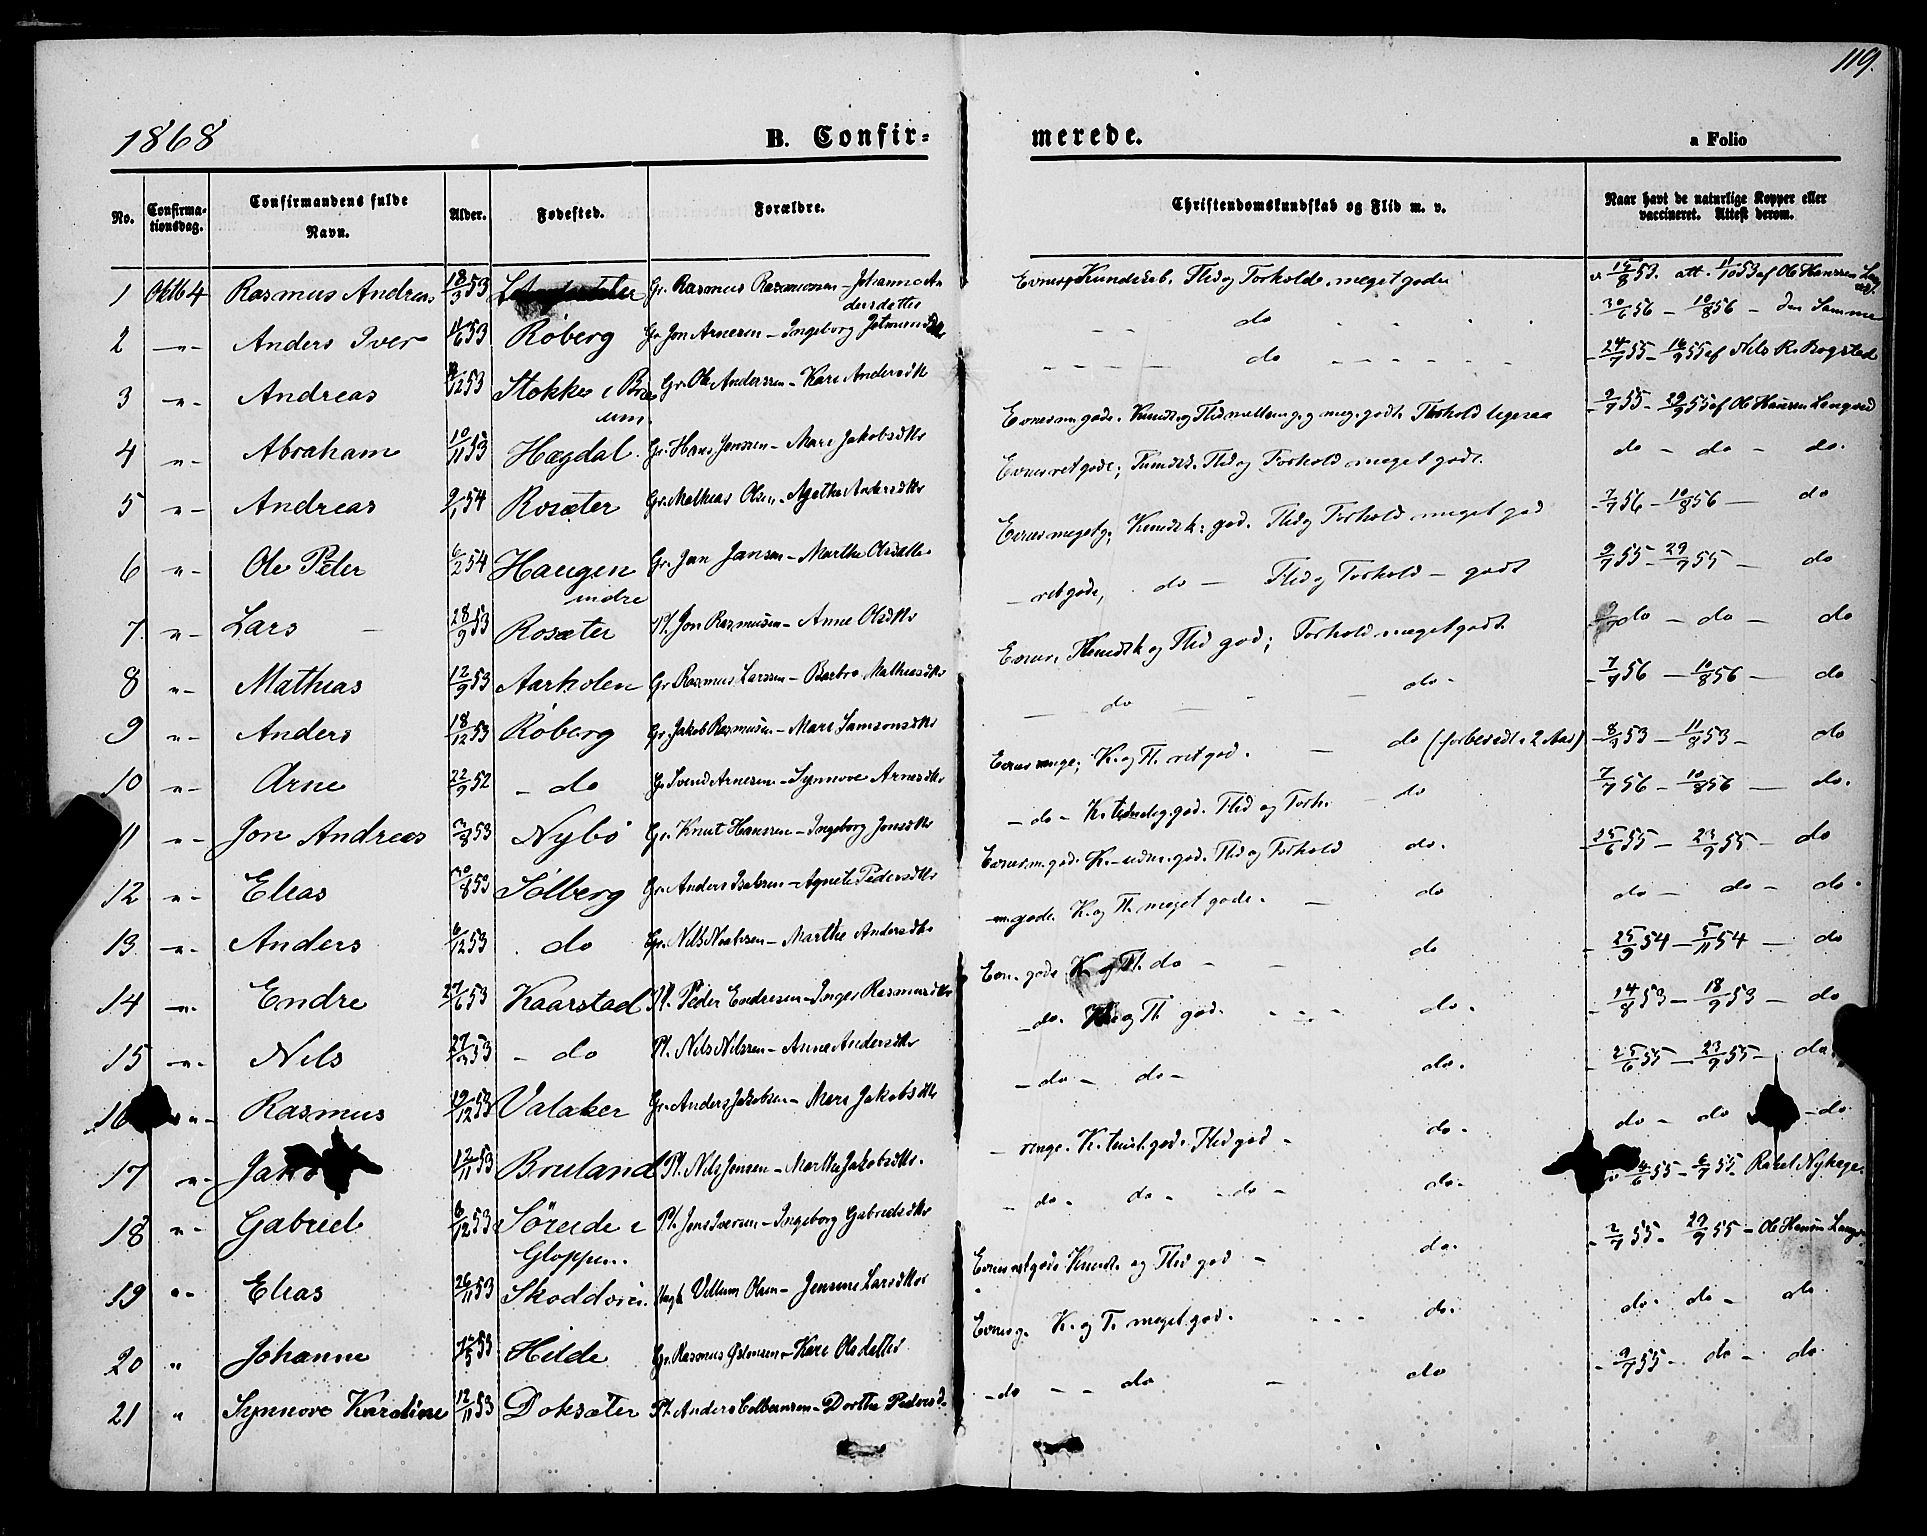 119.
1868
B. Confir=
merede.
a Folio
No.
Confirma-
tionsdag.
Confirmandens fulde
Navn.
Alder.
Fødested.
Forældre.
Christendomskundskab og Flid m. v.
Naar havt de naturlige Kopper eller
vaccineret. Attest derom.
1 Oktb 4 Rasmus Andreas 18/3 53 Gr. Rasmus Rasmussen - Johanne An
dersdatter
Evner og Kundskab, Flid og Forhold meget gode v. 15/8 53. att. 11/10 53 af Ole Hanssen
2 -"- Anders Iver 11/6 53 Røberg Gr. Jon Arnesen - Ingeborg
do 30/6 56 - 10/8 56 - den Samme
3 -"- Andreas 12 53 Stokke i
um.
Gr. Ole Anderssen - Kari Andersdtr
do 24/7 55 - 16/9 55 af Nils R. Bogstad
4 "- Abraham 10/11 53 Hægdal. Gr. Hans Jenssen - Mari Jakobsdtr
Evner m. gode. Forhold ligesaa 9/7 55 - 29/9 55 af Ole Hansen Langved
5 "- Andreas 9/1 54 Rosæter Gr. Mathias Olsen - Agathe Andersdtr
Evner ret gode; Kundsk. Flid og Forhold meget godt. do - do - do.
6 "- Ole Peter 6/2 54 Haugen
indre
Gr. Jan Jansen - Marthe Olsdtr
Evner meget g; Kundsk: god. Flid og Forhold meget god 7/7 56 - 10/8 56 - do
7. "- Lars - 28/9 53 Rosæter Pl. Jon Rasmussen - Anne Olsdtr
- ret gode, do - Flid og Forhold - godt 9/7 55 - 29/9 55 - do
8 "- Mathias 12/9 53 Aarholen Gr. Rasmus Larssen - Barbro Mathiasdtr
Evner, Kundsk og Flid god; Forhold meget godt. do - do - do
9 "- Anders 18/12 53 Røberg Gr. Jakob Rasmusen - Mari Samsonsdtr
- do - - do - 7/7 56 - 10/8 56 - do
10 "- Arne 22/9 52 - do Gr. Svend Arnesen - Synnove Arnesdtr
Evner ringe; K. og Fl. ret god. - do (forberedt i 2 Aar) 8/3 53 - 11/8 53 - do
11 "- Jon Andreas 3/8 53 Nybö Gr. Knut Hanssen - Ingeborg Jonsdtr
- do - K. god. Flid og Forh. - do 7/7 56 - 10/8 56 - do.
12 "- Elias 30/8 53 Solberg Gr. Anders - Agnete Pedersdtr
Evner m. gode. K. god. Flid og Forhold do. 25/6 55 - 23/9 55 - do
13 "- Anders 6/12 53 . do Gr. Nils - Marthe Andersdtr
m gode. K. og Fl. meget gode. - do do - do - do.
14 "- Endre 27/6 53 Kaarstad Pl. Peder Endresen - Inger Rasmusdtr
Evn. gode K. og Fl. do - - do 25/9 54 - 5/11 54 - do
15 "- Nils 27/3 53 - do Pl. Nils Nilssen - Anne Andersdtr
- do. K. og Fl. god. do. 14/8 53 - 18/9 53 - do
16 "- Rasmus 19/12 53 Valaker Gr. Anders Jakobsen - Mari Jakobsdtr
- do - do - do. 25/6 55 - 23/9 55 - do
17 "- 12/11 53 Breland Pl. Nils Jensen - Marthe Jakobsdtr.
- ringe. K. god. Flid god - do. do - do - do.
18 "- Gabriel 6/12 53 Söreide i
Gloppen.
Pl. Jens Iversen - Ingeborg Gabrielsdtr
- do - do - do - do - 6/55 - 6/7 55 - Rakel
19 "- Elias 26/11 53 Skoddvin. Villum Olsen - Jensine Larsdtr
Evner ret gode Kundsk. og Flid god - do. 2/7 55 - 29/9 55 - Ole Hansen
20 " Johanne 53 Hilde Gr. Rasmus Østensen - Kari Olsdatter
Evner g. K. og F. meget god. do. do. do - do.
21 " Synnove Karoline 12/11 53 Doksæter Pl. Anders - Dorthe Pedersd.
- do - - do - do - 9/7 55 - do - do.